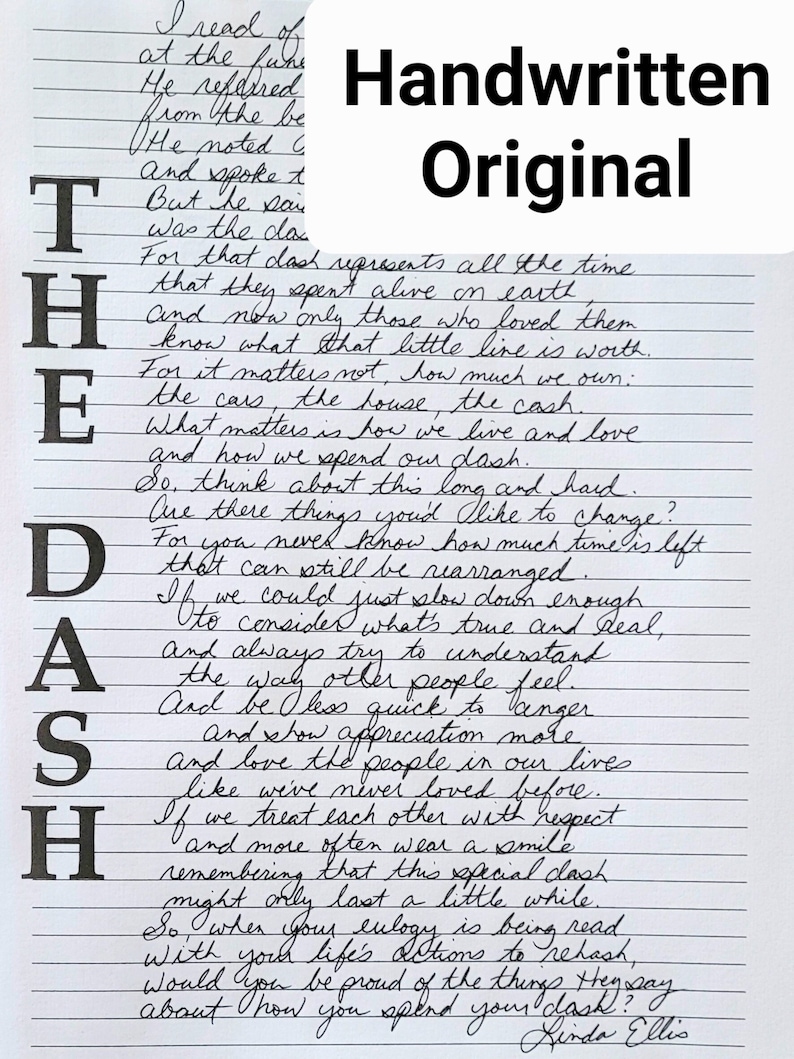 Handwritten
Original
THE DASH
I read of
at the
He referred
from the
He noted
and spoke
But he
was the
For that dash represents all the time
that they spent alive on earth,
and now only those who loved them
know what that little line is worth.
For it matters not, how much we own:
the cars, the house, the cash.
What matters is how we live and love
and how we spend our dash.
So, think about this long and hard.
Are there things you'd like to change?
For you never know how much time is left
that can still be rearranged.
If we could just slow down enough
to consider what's true and real,
and always try to understand
the way other people feel.
And be less quick to anger
and show appreciation more
and love the people in our lives
like we've never loved before.
If we treat each other with respect
and more often wear a smile
remembering that this special dash
might only last a little while.
So, when your eulogy is being read
with your life's actions to rehash,
would you be proud of the things they say
about how you spend your dash?
Linda Ellis